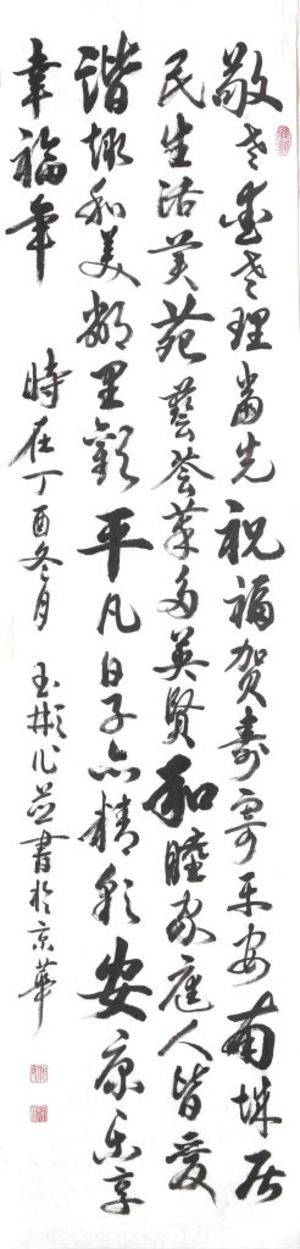 敬老爱老理當先祝福贺寿寄平安南城居
民生活美苑藝荟萃多英贤和睦家庭人皆爱
谐趣和美鄰里歡平凡日子亦精彩安康乐享
幸福年 時在丁酉冬月 玉彬作并書於京華